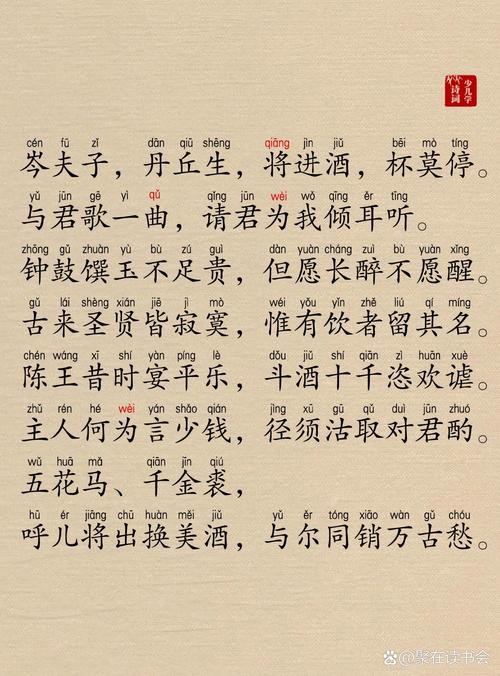 少儿学
诗词
cén fū zǐ dān qiū shēng qiāng jìn jiǔ bēi mò tíng
岑夫子，丹丘生，将进酒，杯莫停。
yǔ jūn gē yì qǔ qǐng jūn wèi wǒ qīng ěr tīng
与君歌一曲，请君为我倾耳听。
zhōng gǔ zhuàn yù bù zú guì dàn yuàn cháng zuì bù yuàn xǐng
钟鼓馔玉不足贵，但愿长醉不愿醒。
gǔ lái shèng xián jiē jì mò wéi yǒu yǐn zhě liú qí míng
古来圣贤皆寂寞，惟有饮者留其名。
chén wáng xī shí yàn píng lè dǒu jiǔ shí qiān zì huān xuè
陈王昔时宴平乐，斗酒十千恣欢谑。
zhǔ rén hé wèi yán shǎo qián jìng xū gū qǔ duì jūn zhuó
主人何为言少钱，径须沽取对君酌。
wǔ huā mǎ qiān jīn qiú
五花马、千金裘，
hū ér jiāng chū huàn měi jiǔ yǔ ěr tóng xiāo wàn gǔ chóu
呼儿将出换美酒，与尔同销万古愁。
@聚在读书会